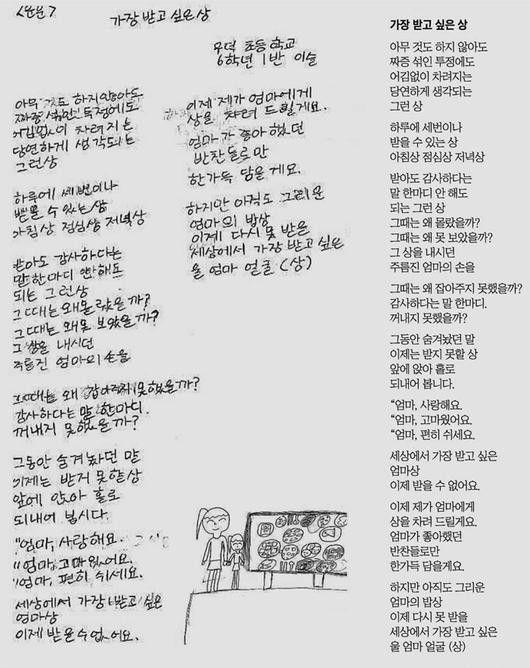 운문 7
가장 받고 싶은 상
우덕 초등학교
6학년 1반 이슬
아무 것도 하지 않아도
짜증 섞인 투정에도
어김없이 차려지는
당연하게 생각되는
그런상
하루에 세번이나
받을 수 있는 상
아침상 점심상 저녁상
받아도 감사하다는
말 한마디 안해도
되는 그런상
그때는 왜 몰랐을까?
그때는 왜 못 보았을까?
그 상을 내시던
주름진 엄마의 손을
그때는 왜 잡아주지 못했을까?
감사하다는 말 한마디.
꺼내지 못했을까?
그동안 숨겨놨던 말
이제는 받지 못할 상
앞에 앉아 홀로
되내어 봅시다.
"엄마, 사랑해요.
"엄마, 고마웠어요.
"엄마, 편히 쉬세요.
세상에서 가장 받고 싶은
엄마상
이제 받을 수 없어요.
이제 제가 엄마에게
상을 차려 드릴게요.
엄마가 좋아했던
반찬들로만
한가득 담을게요.
하지만 아직도 그리운
엄마의 밥상
이제 다시 못 받을
세상에서 가장 받고 싶은
울 엄마 얼굴 (상)
가장 받고 싶은 상
아무 것도 하지 않아도
짜증 섞인 투정에도
어김없이 차려지는
당연하게 생각되는
그런 상
하루에 세번이나
받을 수 있는 상
아침상 점심상 저녁상
받아도 감사하다는
말 한마디 안 해도
되는 그런 상
그때는 왜 몰랐을까?
그때는 왜 못 보았을까?
그 상을 내시던
주름진 엄마의 손을
그때는 왜 잡아주지 못했을까?
감사하다는 말 한마디.
꺼내지 못했을까?
그동안 숨겨놨던 말
이제는 받지 못할 상
앞에 앉아 홀로
되내어 봅니다.
“엄마, 사랑해요.
“엄마, 고마웠어요.
“엄마, 편히 쉬세요.
세상에서 가장 받고 싶은
엄마상
이제 받을 수 없어요.
이제 제가 엄마에게
상을 차려 드릴게요.
엄마가 좋아했던
반찬들로만
한가득 담을게요.
하지만 아직도 그리운
엄마의 밥상
이제 다시 못 받을
세상에서 가장 받고 싶은
울 엄마 얼굴 (상)